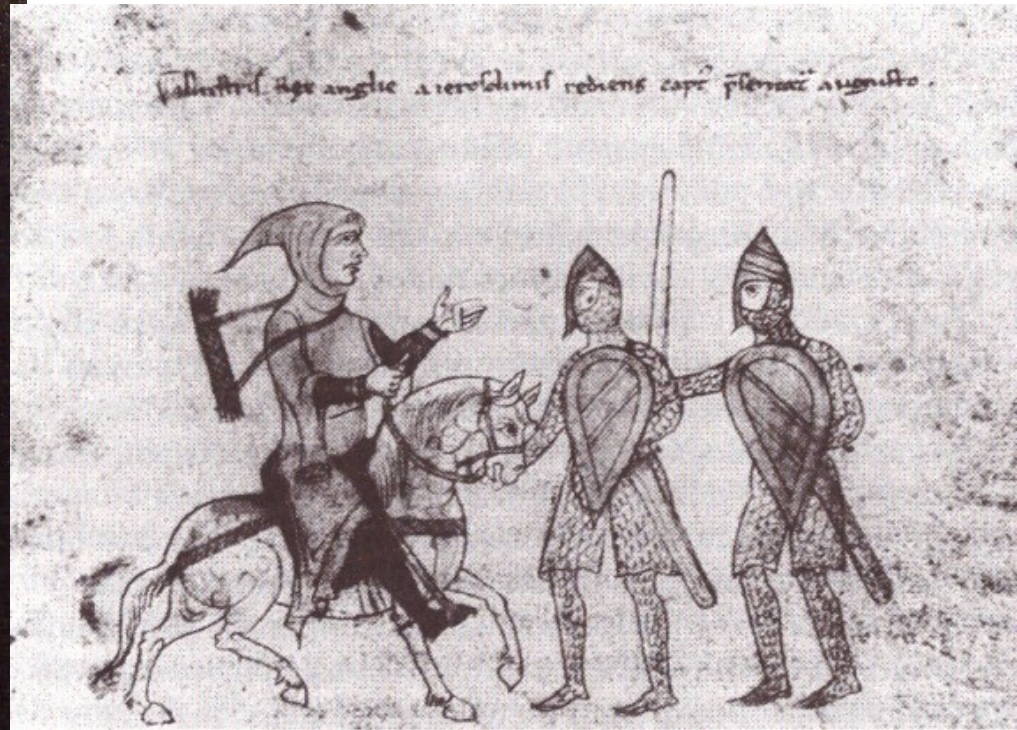 illustris rex anglie a ierosolimis rediens capt̄ p̄sentat̄ augusto.